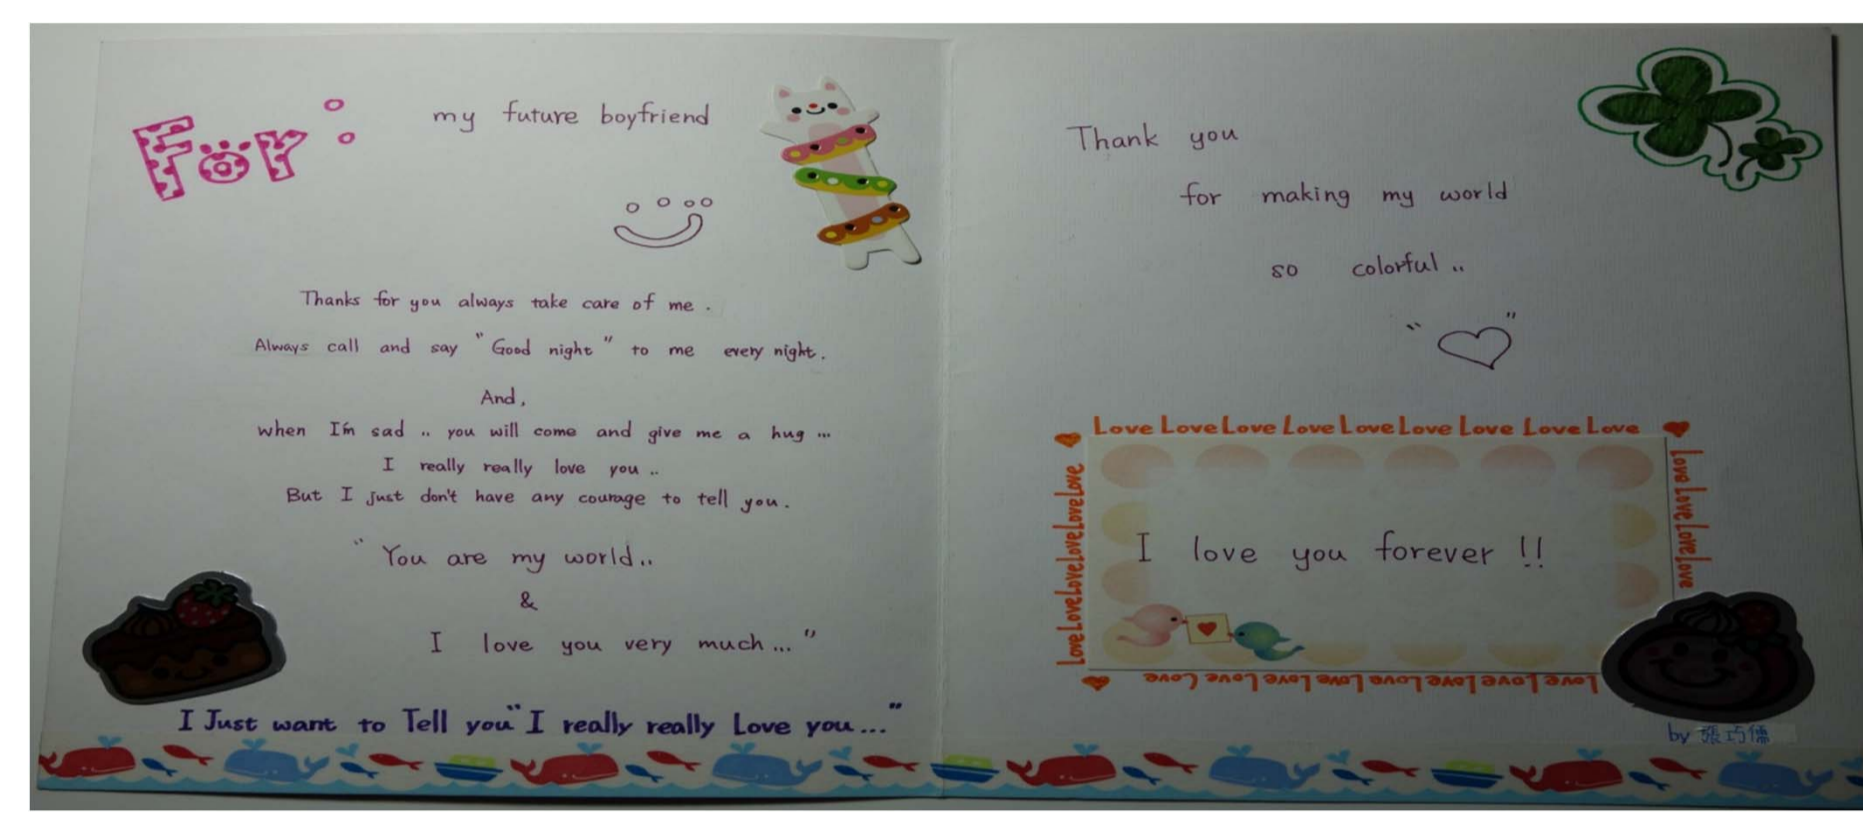 For:
my future boyfriend
Thanks for you always take care of me.
Always call and say "Good night" to me every night.
And,
when I'm sad .. you will come and give me a hug ...
I really really love you ..
But I just don't have any courage to tell you.
"You are my world..
&
I love you very much..."
I Just want to Tell you "I really really Love you..."
Thank you
for making my world
so colorful ..
" "
Love Love Love Love Love Love Love Love Love
Love Love Love Love Love Love
I love you forever !!
Love Love Love Love Love
Love Love Love Love Love Love Love Love
by 張巧儒